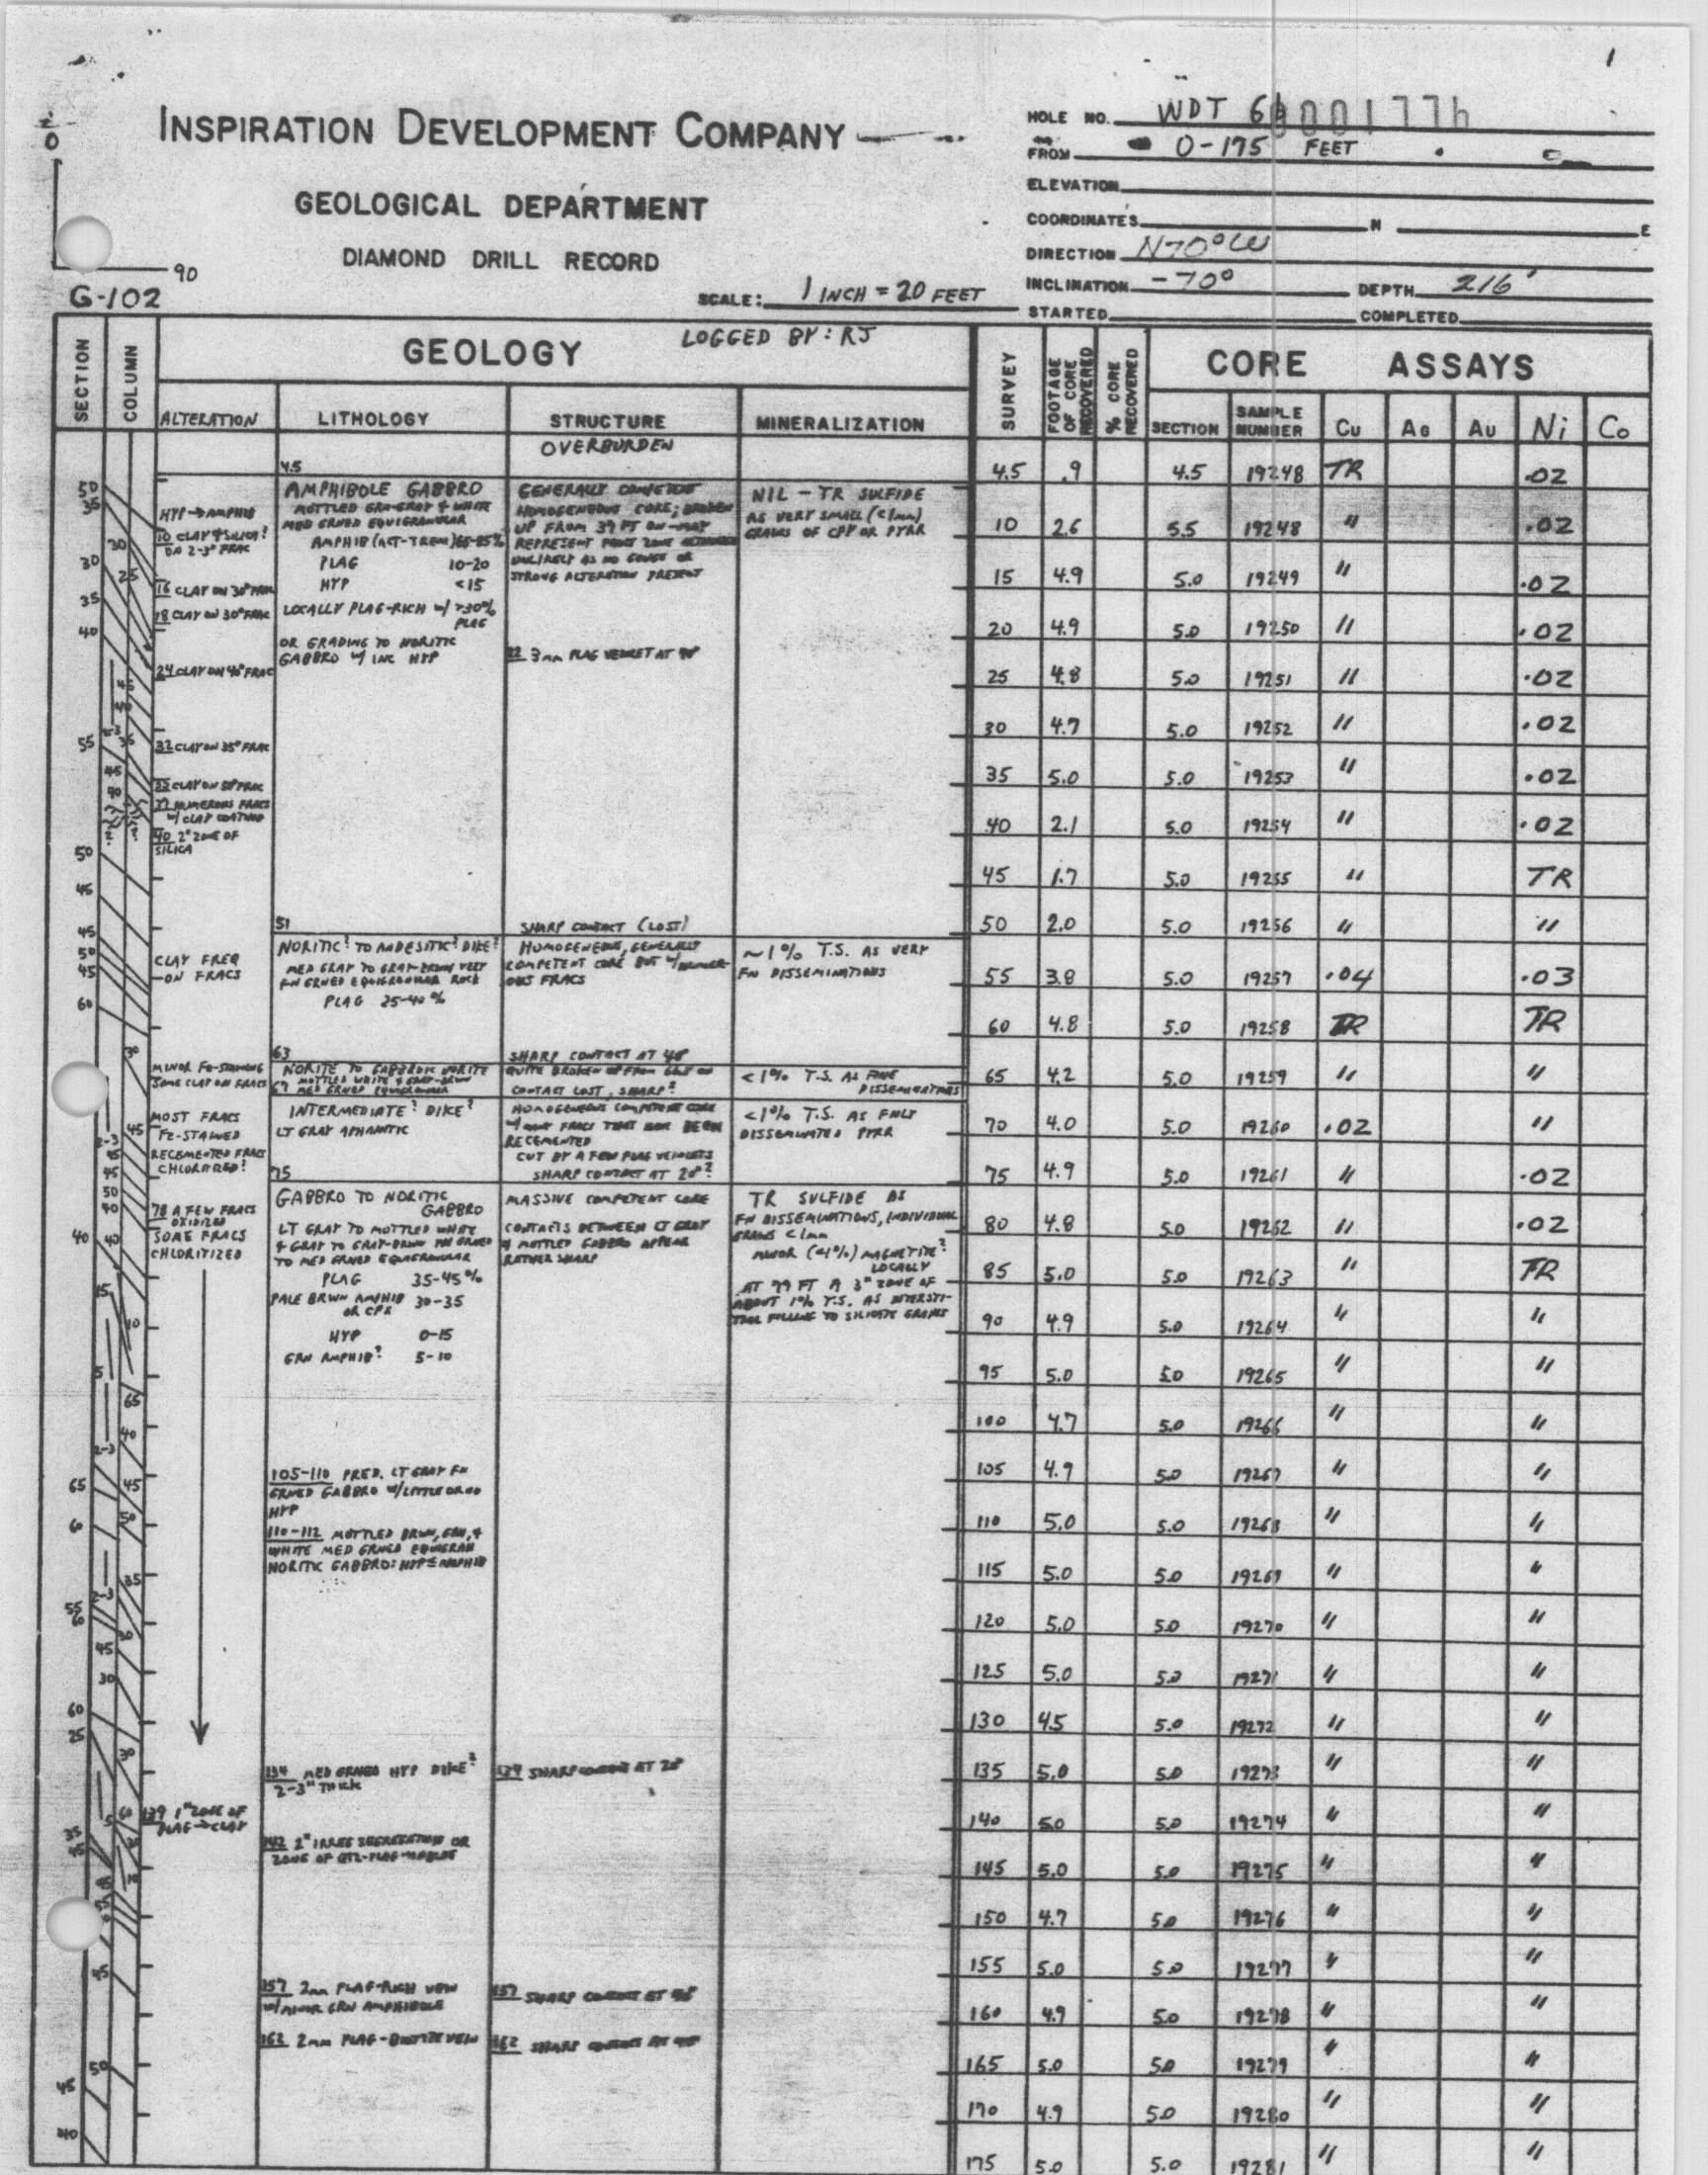 1
INSPIRATION DEVELOPMENT COMPANY
GEOLOGICAL DEPARTMENT
DIAMOND DRILL RECORD
90
G-102
SCALE: 1 INCH = 20 FEET
HOLE NO. WDT 6
0001776
FROM 0-175 FEET
ELEVATION
COORDINATES N E
DIRECTION N70°W
INCLINATION -70° DEPTH 216'
STARTED COMPLETED
SECTION
COLUMN
GEOLOGY
LOGGED BY: RJ
ALTERATION
LITHOLOGY
STRUCTURE
MINERALIZATION
SURVEY
FOOTAGE OF CORE RECOVERED
% CORE RECOVERED
CORE ASSAYS
SECTION
SAMPLE NUMBER
Cu
Ag
Au
Ni
Co
HYP→AMPHIB
10 CLAY & SILICA?
ON 2-3° FRAC
16 CLAY ON 30° FRAC
18 CLAY ON 30° FRAC
24 CLAY ON 40° FRAC
32 CLAY ON 35° FRAC
37 NUMEROUS FRACS
W/ CLAY COATING
40 2" ZONE OF
SILICA
CLAY FREQ
ON FRACS
MINOR FE-STAINING
SOME CLAY ON FRACS
MOST FRACS
FE-STAINED
RECEMENTED FRACS
78 A FEW FRACS
OXIDIZED
SOME FRACS
CHLORITIZED
139 1" ZONE OF
PLAG→CLAY
4.5
AMPHIBOLE GABBRO
MOTTLED GRN-GRAY & WHITE
MED GRNED EQUIGRANULAR
AMPHIB (ACT-TREM)
PLAG 10-20
HYP <15
LOCALLY PLAG-RICH W/ >30%
PLAG
OR GRADING TO NORITIC
GABBRO W/ INC HYP
51
NORITIC? TO ANDESITIC? DIKE?
MED GRAY TO GRAY-BROWN VERY
FN GRNED EQUIGRANULAR ROCK
PLAG 25-40%
63
NORITE TO GABBROIC NORITE
MOTTLED WHITE & GRAY-BRWN
MED GRNED EQUIGRANULAR
INTERMEDIATE? DIKE?
LT GRAY APHANITIC
75
GABBRO TO NORITIC
GABBRO
LT GRAY TO MOTTLED WHITE
& GRAY TO GRAY-BRWN FN GRNED
TO MED GRNED EQUIGRANULAR
PLAG 35-45%
PALE BRWN AMPHIB 30-35
OR CPX
HYP 0-15
GRN AMPHIB? 5-10
105-110 PRED. LT GRAY FN
GRNED GABBRO W/ LITTLE OR NO
HYP
110-112 MOTTLED BRWN, GRN, &
WHITE MED GRNED EQUIGRAN
NORITIC GABBRO: HYP≤AMPHIB
134 MED GRNED HYP DIKE?
2-3" THICK
142 2" IRREG SEGREGATION OR
ZONE OF
157 2mm PLAG-RICH VEIN
W/ MINOR GRN AMPHIBOLE
162 2mm PLAG-BIOTITE VEIN
OVERBURDEN
GENERALLY COMPETENT
HOMOGENEOUS CORE; BROKEN
UP FROM 37 FT ON—MAY
REPRESENT FAULT ZONE
UNLIKELY AS NO GOUGE OR
STRONG ALTERATION PRESENT
22 3mm PLAG VEINLET AT
SHARP CONTACT (LOST)
HOMOGENEOUS, GENERALLY
COMPETENT CORE BUT W/ NUMER-
OUS FRACS
SHARP CONTACT AT
QUITE BROKEN UP FROM
CONTACT LOST, SHARP?
HOMOGENEOUS COMPETENT CORE
W/ FRACS THAT HAVE BEEN
RECEMENTED
CUT BY A FEW PLAG VEINLETS
SHARP CONTACT AT 20°?
MASSIVE COMPETENT CORE
CONTACTS BETWEEN LT GRAY
& MOTTLED GABBRO APPEAR
RATHER SHARP
SHARP CONTACT AT
157 SHARP CONTACT AT
162 SHARP CONTACT AT
NIL - TR SULFIDE
AS VERY SMALL (<1mm)
GRAINS OF CPY OR PYRR
~1% T.S. AS VERY
FN DISSEMINATIONS
<1% T.S. AS FINE
DISSEMINATIONS
<1% T.S. AS FNLY
DISSEMINATED PYRR
TR SULFIDE AS
FN DISSEMINATIONS, INDIVIDUAL
GRAINS <1mm
MINOR (<1%) MAGNETITE?
LOCALLY
AT 79 FT A 3" ZONE OF
ABOUT 1% T.S. AS INTERSTI-
TIAL FILLING TO SILICATE GRAINS
4.5 .9 4.5 19248 TR .02
10 2.6 5.5 19248 " .02
15 4.9 5.0 19249 " .02
20 4.9 5.0 19250 " .02
25 4.8 5.0 19251 " .02
30 4.7 5.0 19252 " .02
35 5.0 5.0 19253 " .02
40 2.1 5.0 19254 " .02
45 1.7 5.0 19255 " TR
50 2.0 5.0 19256 " "
55 3.8 5.0 19257 .04 .03
60 4.8 5.0 19258 TR TR
65 4.2 5.0 19259 " "
70 4.0 5.0 19260 .02 "
75 4.9 5.0 19261 " .02
80 4.8 5.0 19262 " .02
85 5.0 5.0 19263 " TR
90 4.9 5.0 19264 " "
95 5.0 5.0 19265 " "
100 4.7 5.0 19266 " "
105 4.9 5.0 19267 " "
110 5.0 5.0 19268 " "
115 5.0 5.0 19269 " "
120 5.0 5.0 19270 " "
125 5.0 5.0 19271 " "
130 4.5 5.0 19272 " "
135 5.0 5.0 19273 " "
140 5.0 5.0 19274 " "
145 5.0 5.0 19275 " "
150 4.7 5.0 19276 " "
155 5.0 5.0 19277 " "
160 4.9 5.0 19278 " "
165 5.0 5.0 19279 " "
170 4.9 5.0 19280 " "
175 5.0 5.0 19281 " "